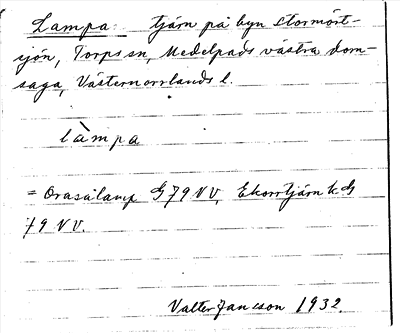 Lampa: tjärn på byn Stormört-
sjön, Torps sn, Medelpads västra dom-
saga, Västernorrlands l.
làmpa
= Orasålamp G 79 NV, Ekorrtjärn k G
79 NV.
Valter Jansson 1932.